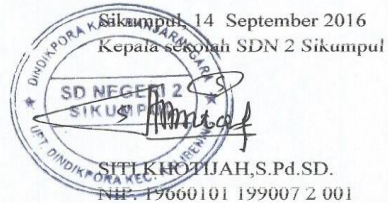 Sikumpul, 14 September 2016
Kepala sekolah SDN 2 Sikumpul
DINDIKPORA KAB. BANJARNEGARA
SD NEGERI 2
SIKUMPUL
UPT. DINDIKPORA KEC.
SITI KHOTIJAH,S.Pd.SD.
NIP. 19660101 199007 2 001